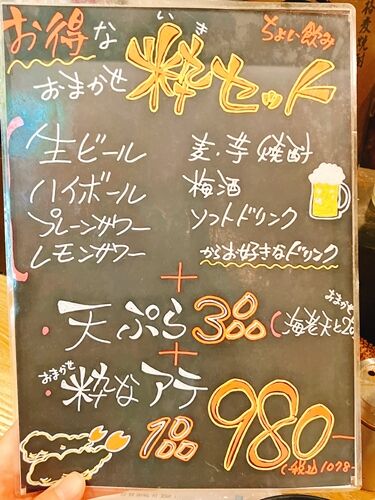 お得な ちょい飲み
いき
おまかせ 粋セット
生ビール 麦・芋焼酎
ハイボール 梅酒
プレーンサワー ソフトドリンク
レモンサワー からお好きなドリンク
+
おまかせ
・天ぷら3コ(海老天と
+
おまかせ
・粋なアテ 1コ 980-
(税込1078-